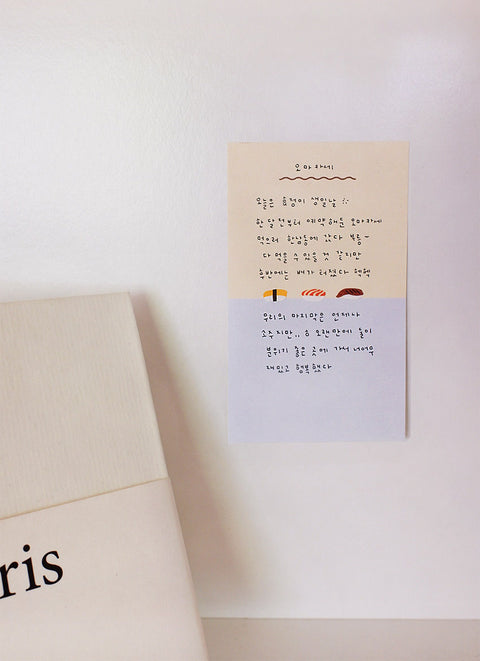 오마카세
오늘은 효정이 생일날
한 달 전부터 예약해둔 오마카세
먹으러 한남동에 갔다 부릉~
다 먹을 수 있을 것 같지만
후반에는 배가 터졌다 헥헥
우리의 마지막은 언제나
소주지만.. ㅎ 오랜만에 둘이
분위기 좋은 곳에 가서 너어무
재밌고 행복했다
ris